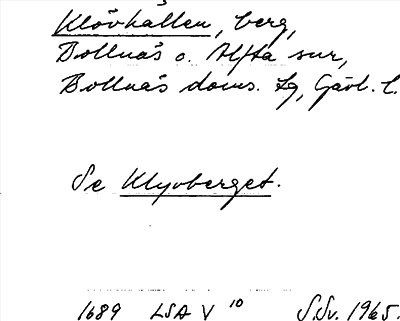 Klövhällen, berg,
Bollnäs o. Alfta snr,
Bollnäs doms. tg, Gävl. l.
Se Klyvberget.
1689 LSA V 10 S.Sv. 1965.